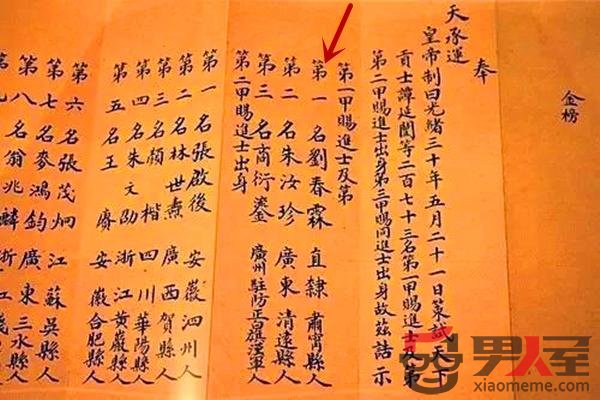 金榜
奉
天承運
皇帝制曰光緒三十年五月二十一日策試天下
貢士譚延闓等二百七十三名第一甲賜進士及第
第二甲賜進士出身第三甲賜同進士出身故茲誥示
第一甲賜進士及第
第一名劉春霖 直隸肅甯縣人
第二名朱汝珍 廣東清遠縣人
第三名商衍鎏 廣州駐防正白旗漢軍人
第二甲賜進士出身
第一名張啟後 安徽泗州人
第二名林世燾 廣西賀縣人
第三名顏楷 四川華陽縣人
第四名朱文劭 浙江黃巖縣人
第五名王賡 安徽合肥縣人
第六名張茂炯 江蘇吳縣人
第七名麥鴻鈞 廣東三水縣人
第八名翁兆麟 浙江
第九名
男人窝
xiaomeme.com